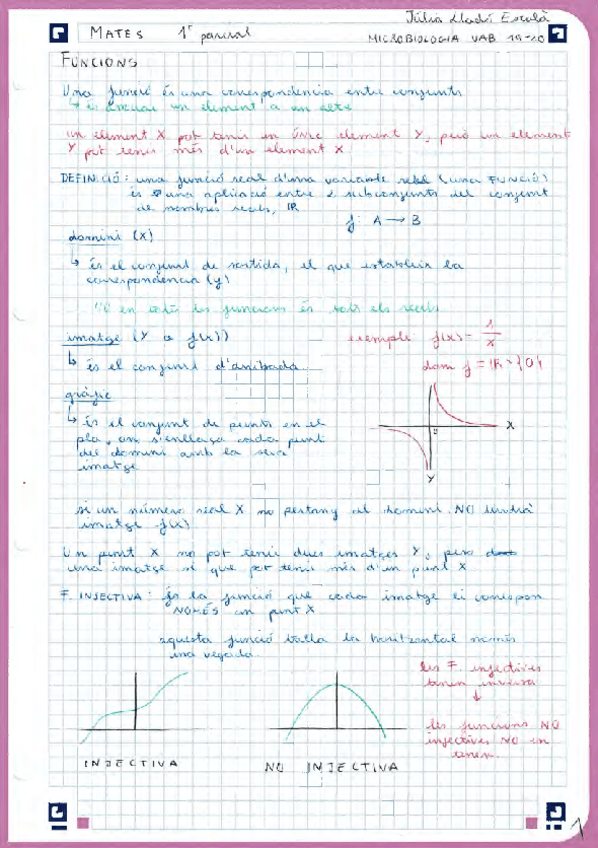 Júlia Lladó Escolà
MATES 1r parcial MICROBIOLOGIA UAB 19-20
FUNCIONS
Una funció és una correspondència entre conjunts
↳ és associar un element a un altre
un element X pot tenir un únic element Y, però un element
Y pot tenir més d'un element X
DEFINICIÓ: una funció real d'una variable real (una FUNCIÓ)
és una aplicació entre 2 subconjunts del conjunt
de nombres reals, IR
f: A → B
domini (X)
↳ és el conjunt de sortida, el que estableix la
correspondència (y)
en totes les funcions és tots els reals
imatge (Y o f(x)) exemple f(x) = 1/X
↳ és el conjunt d'arribada. dom f = IR \ {0}
gràfic
↳ és el conjunt de punts en el
pla, on s'enllaça cada punt
del domini amb la seva
imatge
X
Y
si un número real X no pertany al domini, NO tindrà
imatge f(x)
Un punt X no pot tenir dues imatges Y, però
una imatge sí que pot tenir més d'un punt X
F. INJECTIVA: és la funció que cada imatge li correspon
NOMÉS un punt X
aquesta funció talla la horitzontal només
una vegada.
les F. injectives
tenen inversa
↓
les funcions NO
injectives NO en
tenen.
INJECTIVA NO INJECTIVA
1